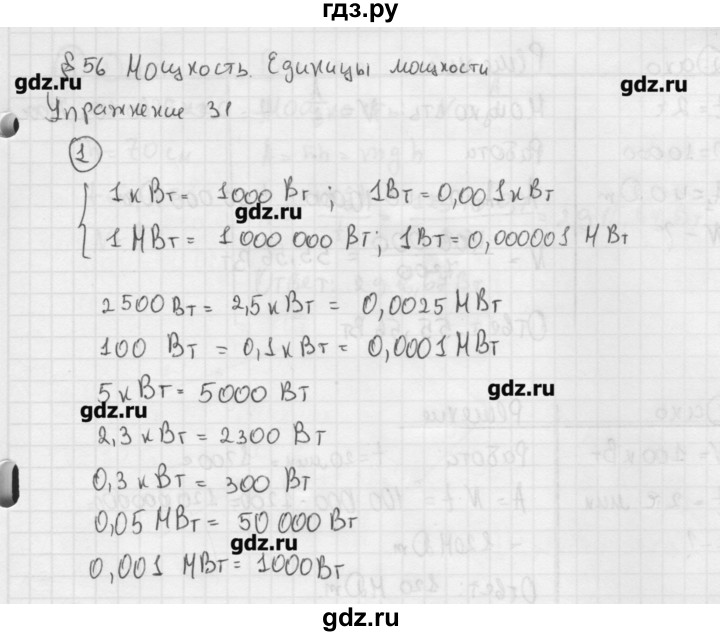 гдз.ру
§ 56 Мощность. Единицы мощности
gdz.ru
gdz.ru
Упражнение 31
1
1 кВт = 1000 Вт ; 1Вт = 0,001кВт
gdz.ru
1 МВт = 1 000 000 Вт; 1Вт = 0,000001 МВт
2500 Вт = 2,5 кВт = 0,0025 МВт
100 Вт = 0,1 кВт = 0,0001 МВт
5 кВт = 5000 Вт
gdz.ru
gdz.ru
2,3 кВт = 2300 Вт
0,3 кВт = 300 Вт
0,05 МВт = 50 000 Вт
gdz.ru
0,001 МВт = 1000Вт
gdz.ru